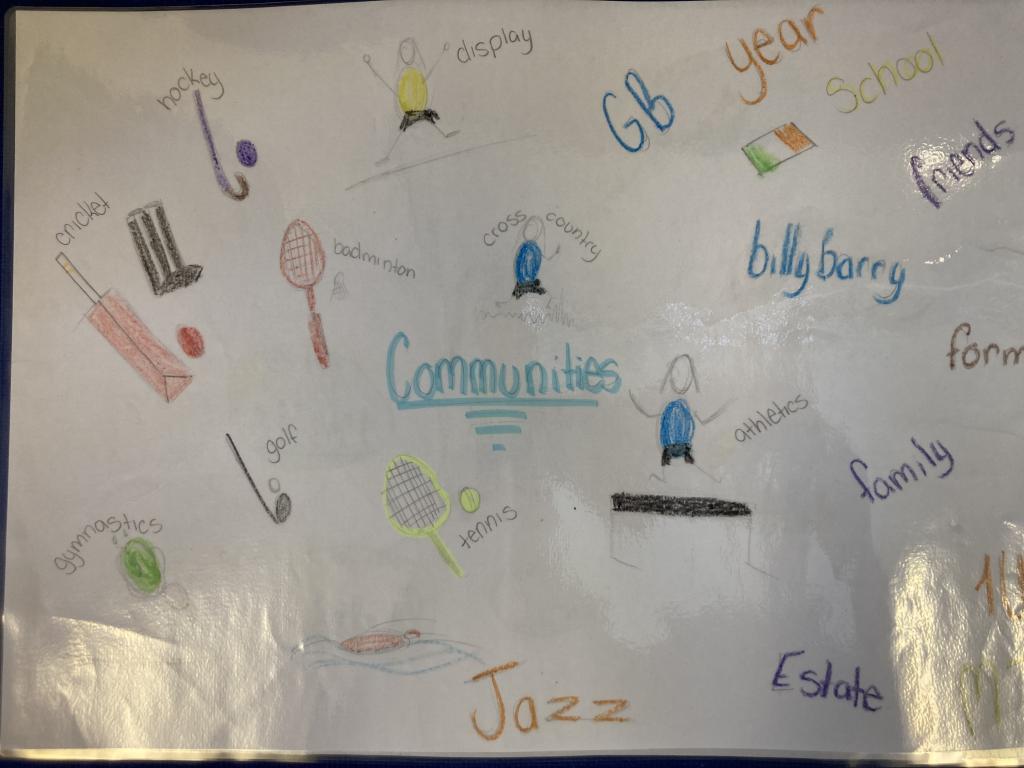 display
year
GB
School
hockey
friends
cricket
badminton
cross country
billybarry
Communities
form
athletics
golf
family
tennis
gymnastics
Jazz
Estate